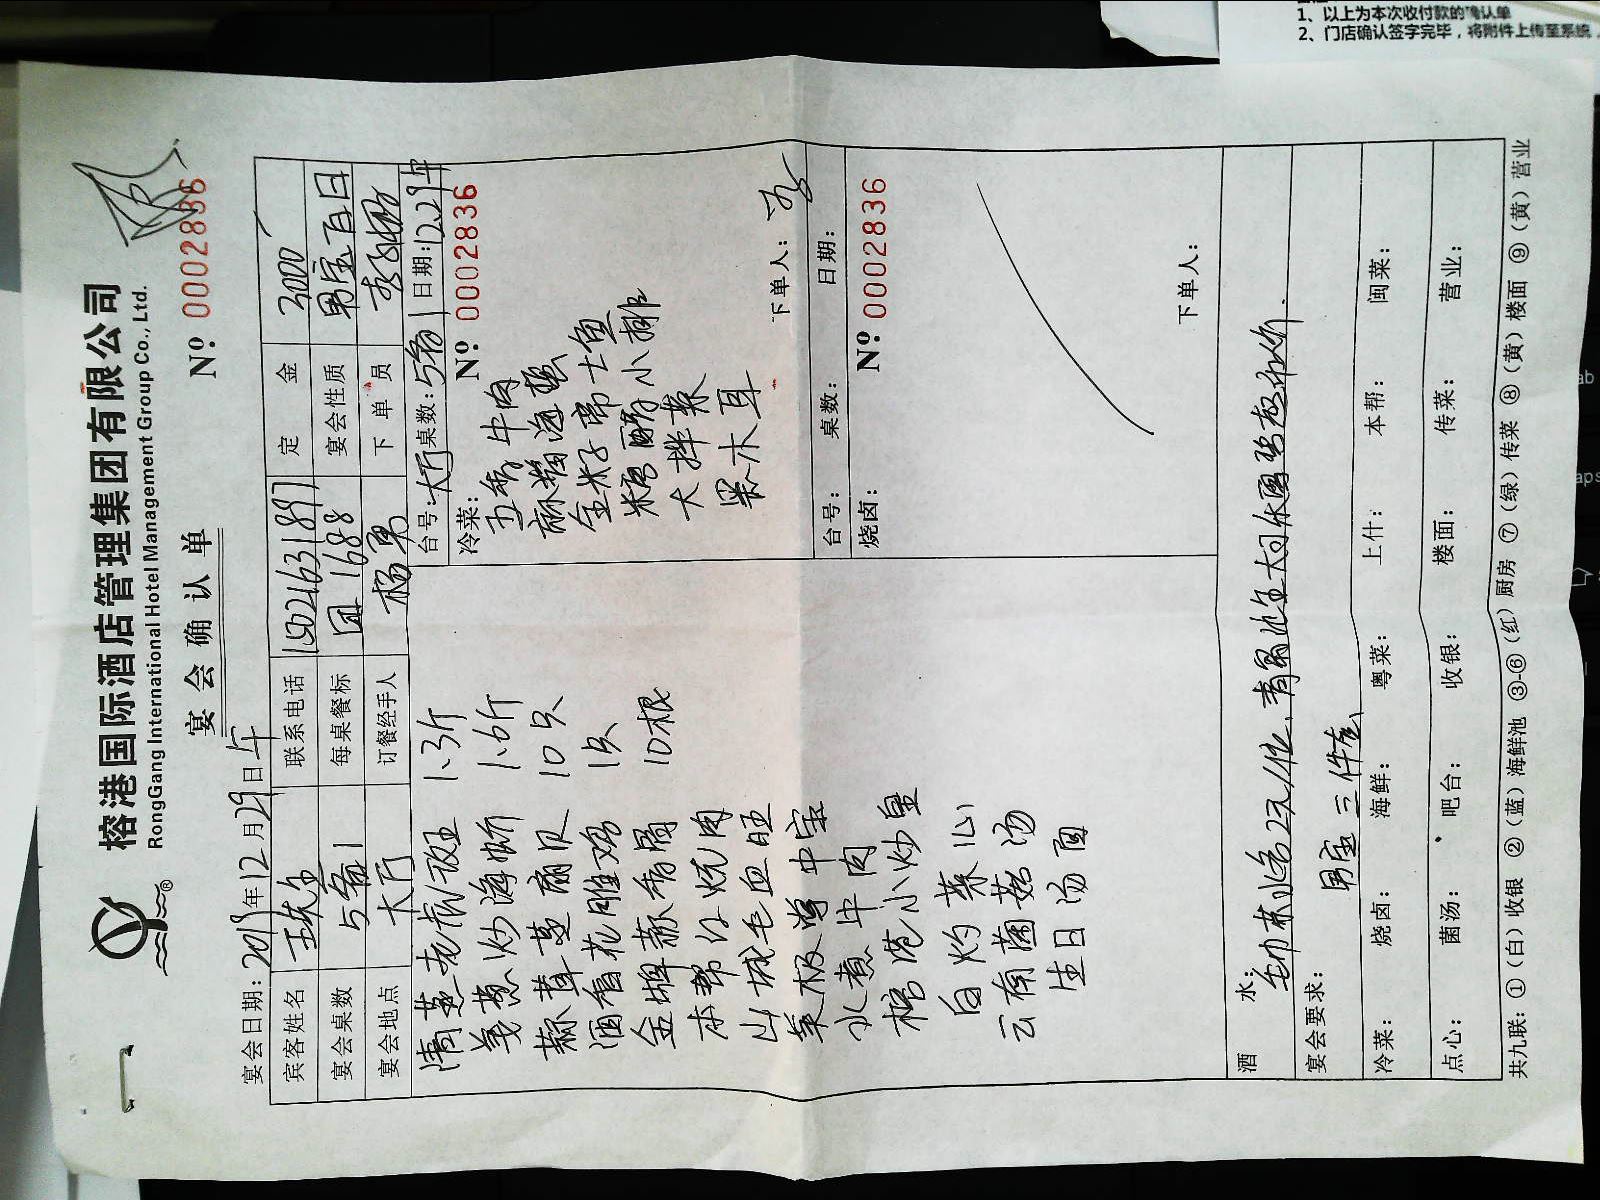 1、以上为本次收付款的确认单
2、门店确认签字完毕，将附件上传至系统，
榕港国际酒店管理集团有限公司
RongGang International Hotel Management Group Co., Ltd.
宴会确认单
Nº 0002836
宴会日期：2019年12月29日午
宾客姓名 联系电话 15021631897 定金 3000
宴会桌数 5备1 每桌餐标 团1688 宴会性质 男宝百日
宴会地点 大厅 订餐经手人 杨勇 下单员
清蒸老虎斑 1.3斤
姜葱炒海蟹 1.6斤
蒜茸蒸扇贝 10只
酒香花雕鸡 1只
金牌蒜香骨 10根
本帮红烧肉
山城毛血旺
菜板
水煮牛肉
榕港小炒皇
白灼菜心
云南菌菇汤
生日汤面
台号：大厅 桌数：5备1 日期：12.29午
冷菜： Nº 0002836
五香牛肉
麻酱海蜇
金籽带士鱼
糖醋小排
大拌菜
果木耳
下单人：
台号： 桌数： 日期：
烧卤： Nº 0002836
下单人：
酒水：毛巾茶水各2元/位
宴会要求：男宝三件套
冷菜： 烧卤： 海鲜： 粤菜： 上什： 本帮： 闽菜：
点心： 菌汤： 吧台： 收银： 楼面： 传菜： 营业：
共九联：①（白）收银 ②（蓝）海鲜池 ③-⑥（红）厨房 ⑦（绿）传菜 ⑧（黄）楼面 ⑨（黄）营业